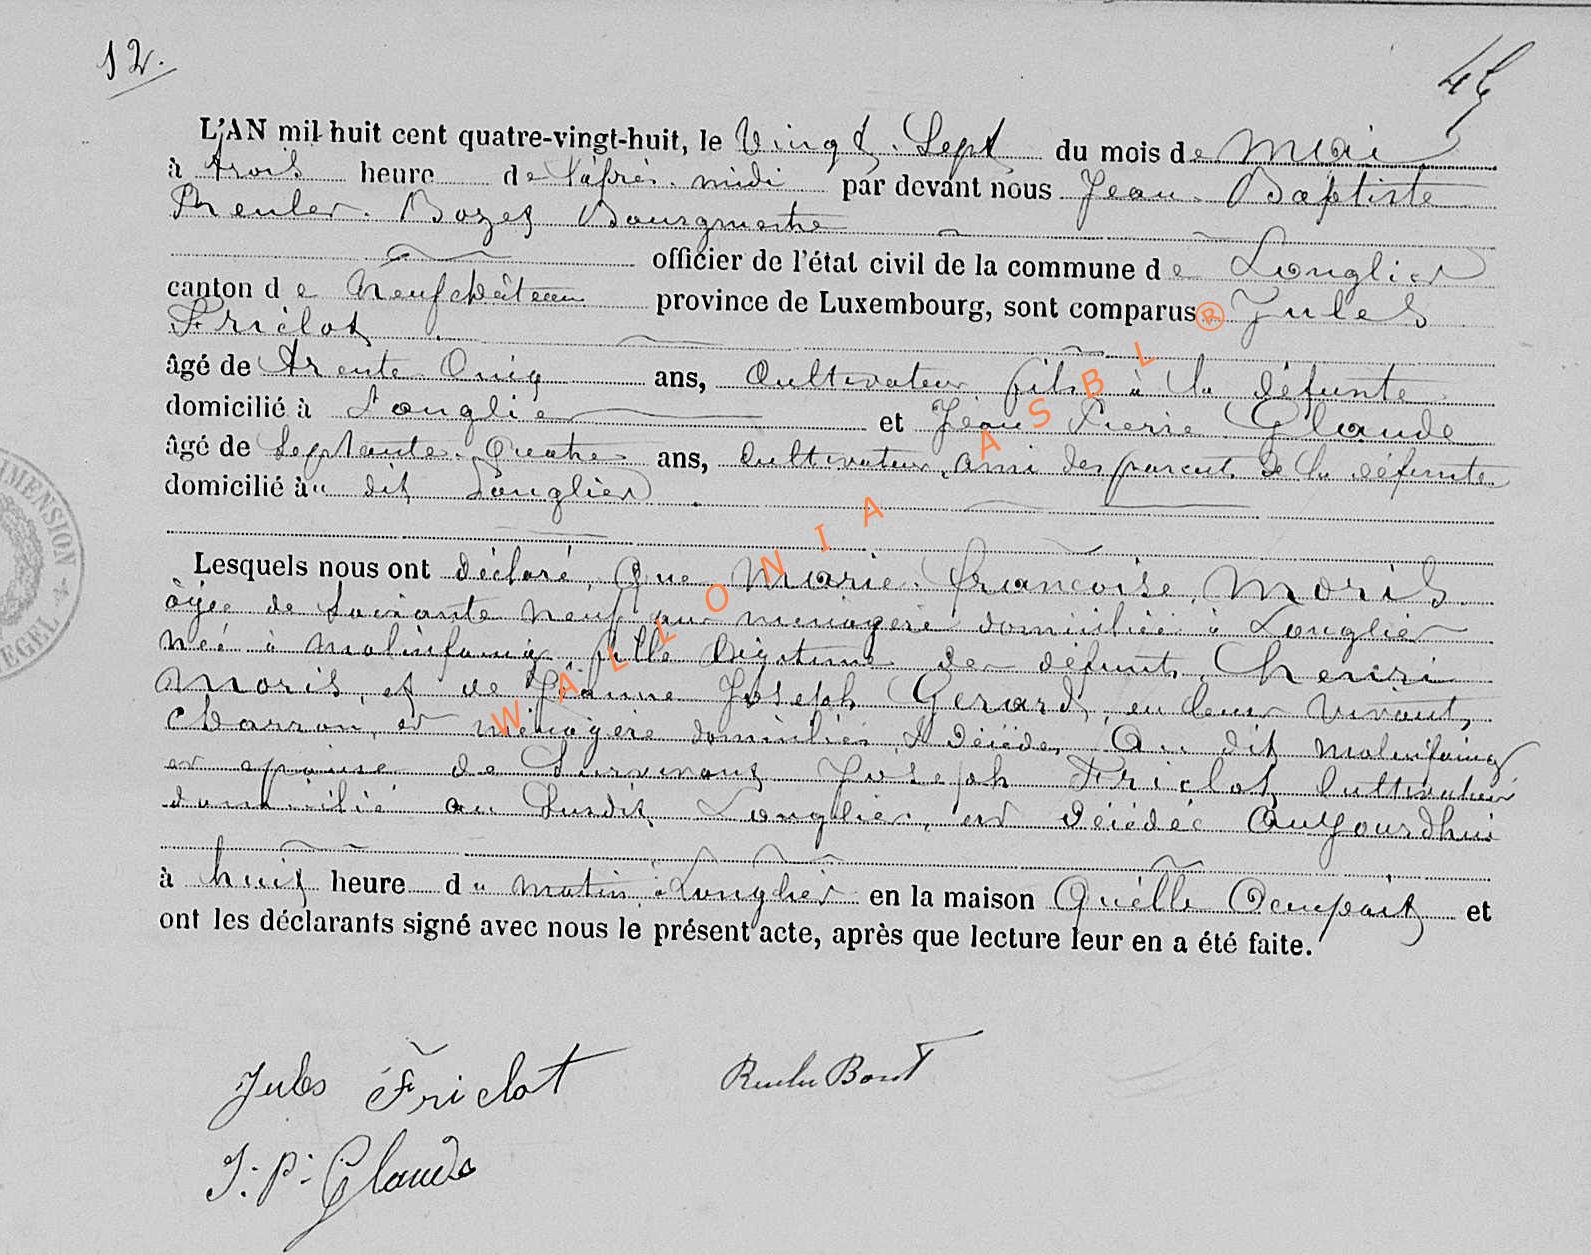 12.
L'AN mil huit cent quatre-vingt-huit, le Vingt Sept du mois de Mai
à trois heure de l'après-midi par devant nous Jean-Baptiste
Reuler-Bozet Bourgmestre
officier de l'état civil de la commune de Longlier
canton de Neufchâteau province de Luxembourg, sont comparus Jules
Friclot
âgé de trente Cinq ans, Cultivateur fils à la défunte
domicilié à Longlier et Jean Pierre Glaude
âgé de Septante-Quatre ans, Cultivateur, ami des parents de la défunte
domicilié au dit Longlier
Lesquels nous ont déclaré, Que Marie-Françoise, Moris
âgée de Soixante neuf ans ménagère domiciliée à Longlier
née à Molinfaing, fille légitime des défunts, Henri
Moris, et de Jeanne Joseph Gerard, en leur vivant,
Charron, et ménagère domiciliés, & décédés, Au dit Molinfaing
et épouse de Survivant Joseph Friclot, Cultivateur
domicilié au Susdit Longlier, est décédée Aujourdhui
à huit heure du matin, à Longlier en la maison Qu'elle Occupait et
ont les déclarants signé avec nous le présent acte, après que lecture leur en a été faite.
Jules Friclot
J. P. Glaude
WALLONIA ASBL ®